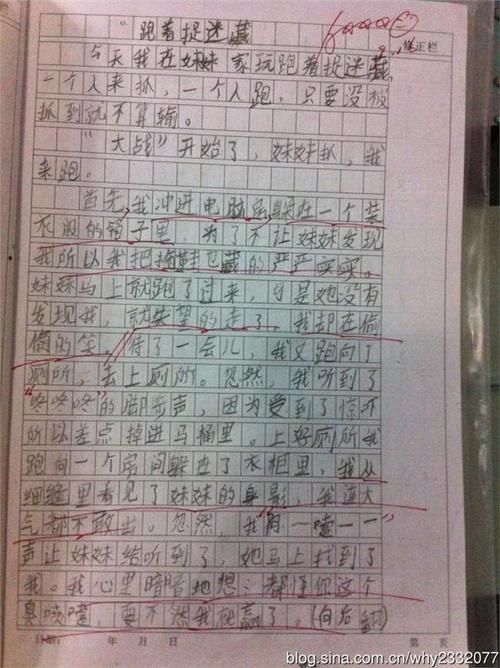 “跑着捉迷藏
修正栏
今天我在妹妹家玩跑着捉迷藏,
一个人来抓，一个人跑，只要没被
抓到就不算输。
“大战”开始了，妹妹抓，我
来跑。
首先，我冲进电脑房躲在一个装
衣服的箱子里，为了不让妹妹发现
我所以我把拖鞋也藏的严严实实。
妹妹马上就跑了过来，可是她没有
发现我，就失望的走了，我却在偷
偷的笑。待了一会儿，我又跑向了
厕所，去上厕所。忽然，我听到了
“咚咚咚”的脚步声，因为受到了惊吓
所以差点掉进马桶里。上好厕所我
跑向一个房间躲在了衣柜里，我从
细缝里看见了妹妹的身影，我连大
气都不敢出。忽然，我“阿一嚏一一”
声让妹妹给听到了，她马上找到了
我。我心里暗暗地想：都怪你这个
臭喷嚏，要不然我就赢了。(向后翻)
日期： 年 月 日 第 页
blog.sina.com.cn/why2332077